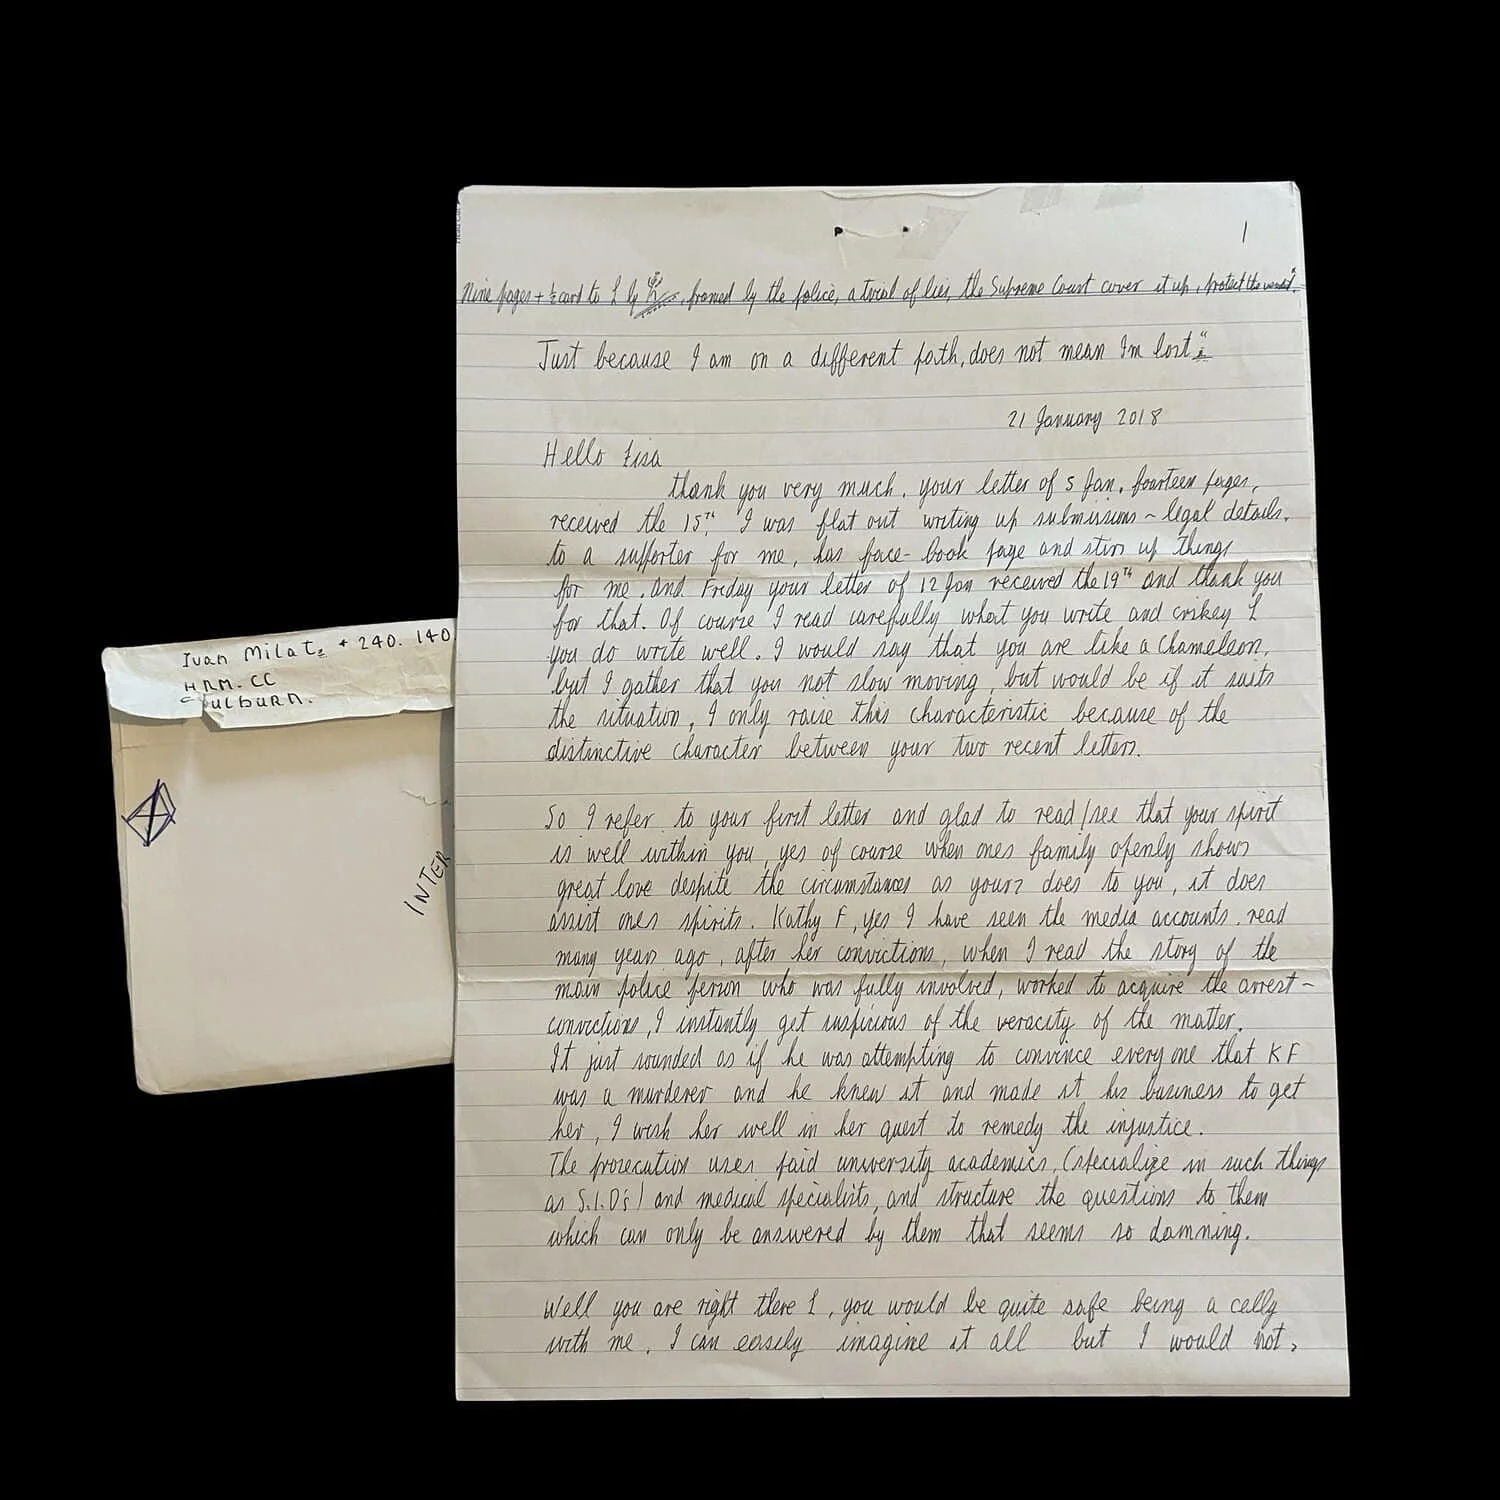 1
Nine pages + ½ card to L by framed by the police, a trial of lies, the Supreme Court cover it up, protect the
Just because I am on a different path, does not mean Im lost
21 January 2018
Hello Lisa
thank you very much, your letter of 5 Jan, fourteen pages,
received the 15th. I was flat out writing up submissions ~ legal details,
to a supporter for me, has face-book page and stirs up things
for me. and Friday your letter of 12 Jan received the 19th and thank you
for that. Of course I read carefully what you write and crikey L
you do write well. I would say that you are like a Chameleon,
but I gather that you not slow moving, but would be if it suits
the situation, I only raise this characteristic because of the
distinctive character between your two recent letters.
So I refer to your first letter and glad to read/see that your spirit
is well within you, yes of course when ones family openly shows
great love despite the circumstances as yours does to you, it does
assist ones spirits. Kathy F, yes I have seen the media accounts, read
many years ago, after her convictions, when I read the story of the
main police person who was fully involved, worked to acquire the arrest-
convictions, I instantly get suspicious of the veracity of the matter.
It just sounded as if he was attempting to convince every one that KF
was a murderer and he knew it and made it his business to get
her, I wish her well in her quest to remedy the injustice.
The prosecution uses paid university academics, (specialize in such things
as S.I.D's) and medical specialists, and structure the questions to them
which can only be answered by them that seems so damning.
Well you are right there L, you would be quite safe being a celly
with me, I can easily imagine it all but I would not,
Ivan Milat. + 240. 140
HRM. CC
Goulburn.
INTER